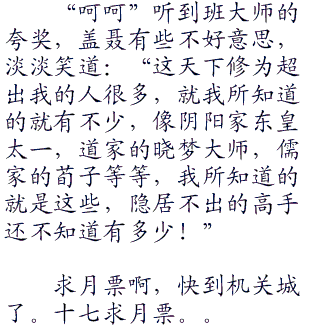 “呵呵”听到班大师的
夸奖，盖聂有些不好意思，
淡淡笑道：“这天下修为超
出我的人很多，就我所知道
的就有不少，像阴阳家东皇
太一，道家的晓梦大师，儒
家的荀子等等，我所知道的
就是这些，隐居不出的高手
还不知道有多少！”
求月票啊，快到机关城
了。十七求月票。。